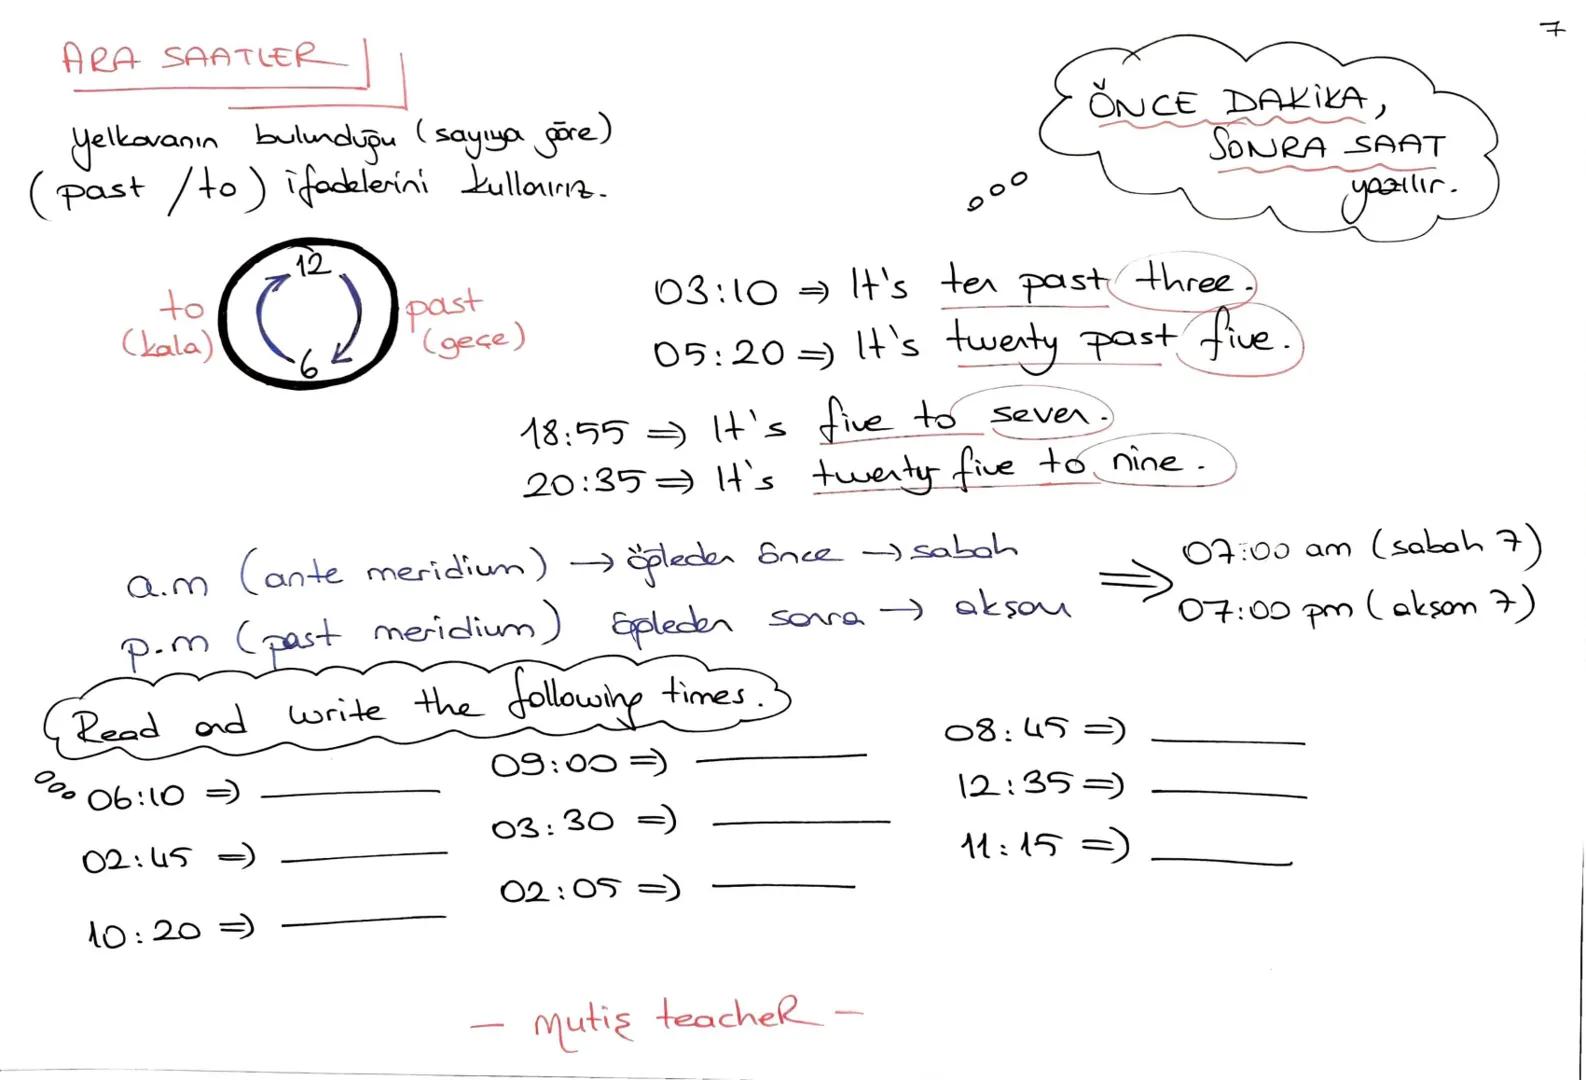 7
ARA SAATLER
Yelkovanın bulunduğu (sayıya göre)
(past / to) ifadelerini kullanırız.
ÖNCE DAKİKA,
SONRA SAAT
yazılır.
12
6
to
(kala)
past
(geçe)
03:10 ⇒ It's ten past three.
05:20 ⇒ It's twenty past five.
18:55 ⇒ It's five to seven.
20:35 ⇒ It's twenty five to nine.
a.m (ante meridium) → öğleden önce → sabah
p.m (past meridium) öğleden sonra → akşam
⇒ 07:00 am (sabah 7)
07:00 pm (akşam 7)
Read and write the following times.
06:10 ⇒ ______
02:45 ⇒ ______
10:20 ⇒ ______
09:00 ⇒ ______
03:30 ⇒ ______
02:05 ⇒ ______
08:45 ⇒ ______
12:35 ⇒ ______
11:15 ⇒ ______
- mutiş teacheR -